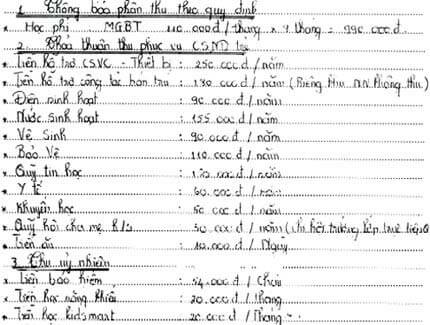 1. Thông báo phần thu theo quy định
* Học phí MGBT 110.000đ/tháng x 9 tháng = 990.000đ
2. Thỏa thuận thu phục vụ CSND trẻ
* Tiền hỗ trợ CSVC - Thiết bị : 250.000đ/năm
* Tiền hỗ trợ công tác bán trú : 180.000đ/năm (Riêng thu NN không thu)
* Điện sinh hoạt : 90.000đ/năm
* Nước sinh hoạt : 155.000đ/năm
* Vệ sinh : 90.000đ/năm
* Bảo vệ : 110.000đ/năm
* Quỹ tin học : 120.000đ/năm
* Y tế : 60.000đ/năm
* Khuyến học : 50.000đ/năm
* Quỹ hội cha mẹ h/s : 50.000đ/năm (chi hội trưởng lớp trực tiếp
* Tiền ăn : 10.000đ/Ngày
3. Thu tự nhiên
* Tiền bảo hiểm : 54.000đ/Cháu
* Tiền học năng khiếu : 20.000đ/tháng
* Tiền học kidsmart : 20.000đ/Tháng